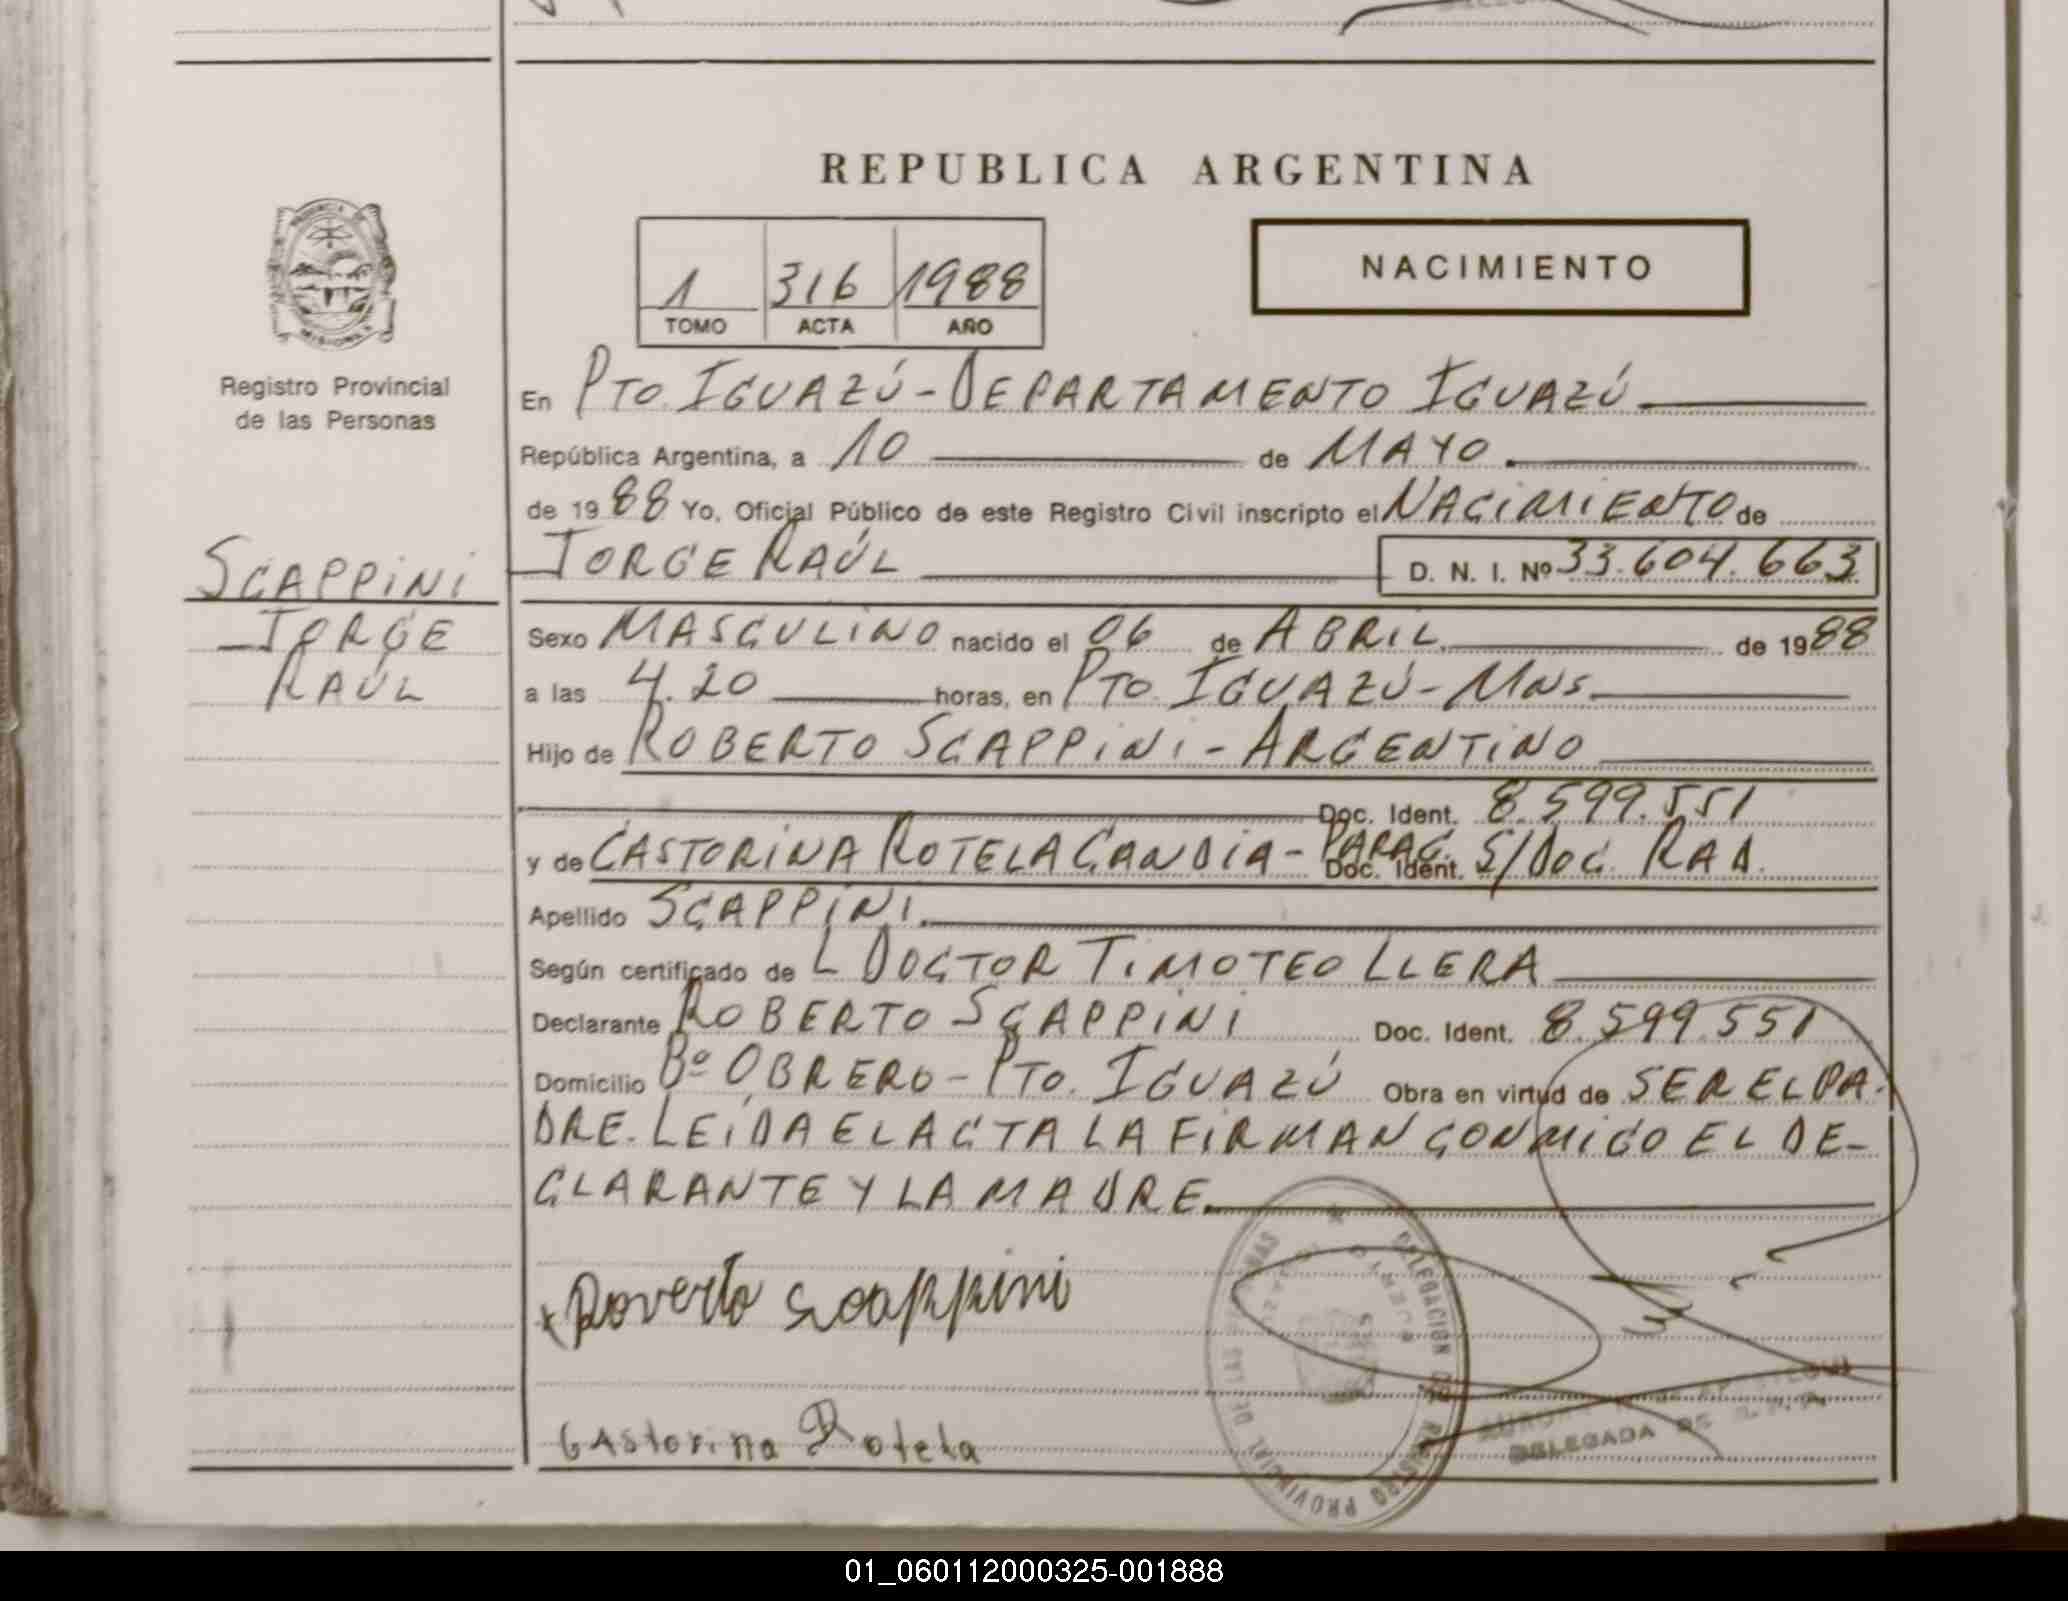 REPUBLICA ARGENTINA
1 316 1988
TOMO ACTA AÑO
NACIMIENTO
Registro Provincial
de las Personas
SCAPPINI
JORGE
RAÚL
En PTO. IGUAZÚ - DEPARTAMENTO IGUAZÚ
República Argentina, a 10 de MAYO.
de 1988 Yo, Oficial Público de este Registro Civil inscripto el NACIMIENTO de
JORGE RAÚL D. N. I. Nº 33.604.663
Sexo MASCULINO nacido el 06 de ABRIL de 1988
a las 4.20 horas, en PTO. IGUAZÚ - MNS.
Hijo de ROBERTO SCAPPINI - ARGENTINO
Doc. Ident. 8.599.551
y de CASTORINA ROTELA CANDIA - PARAG. Doc. Ident. S/DOC. RAD.
Apellido SCAPPINI.
Según certificado de L DOCTOR TIMOTEO LLERA
Declarante ROBERTO SCAPPINI Doc. Ident. 8.599.551
Domicilio Bº OBRERO - PTO. IGUAZÚ Obra en virtud de SER EL PA-
DRE. LEIDA EL ACTA LA FIRMAN CONMIGO EL DE-
CLARANTE Y LA MADRE.
x Roverto Scappini
Castorina Rotela
DELEGACION DEL REGISTRO PROVINCIAL DE LAS PERSONAS
DELEGADA DE
01_060112000325-001888